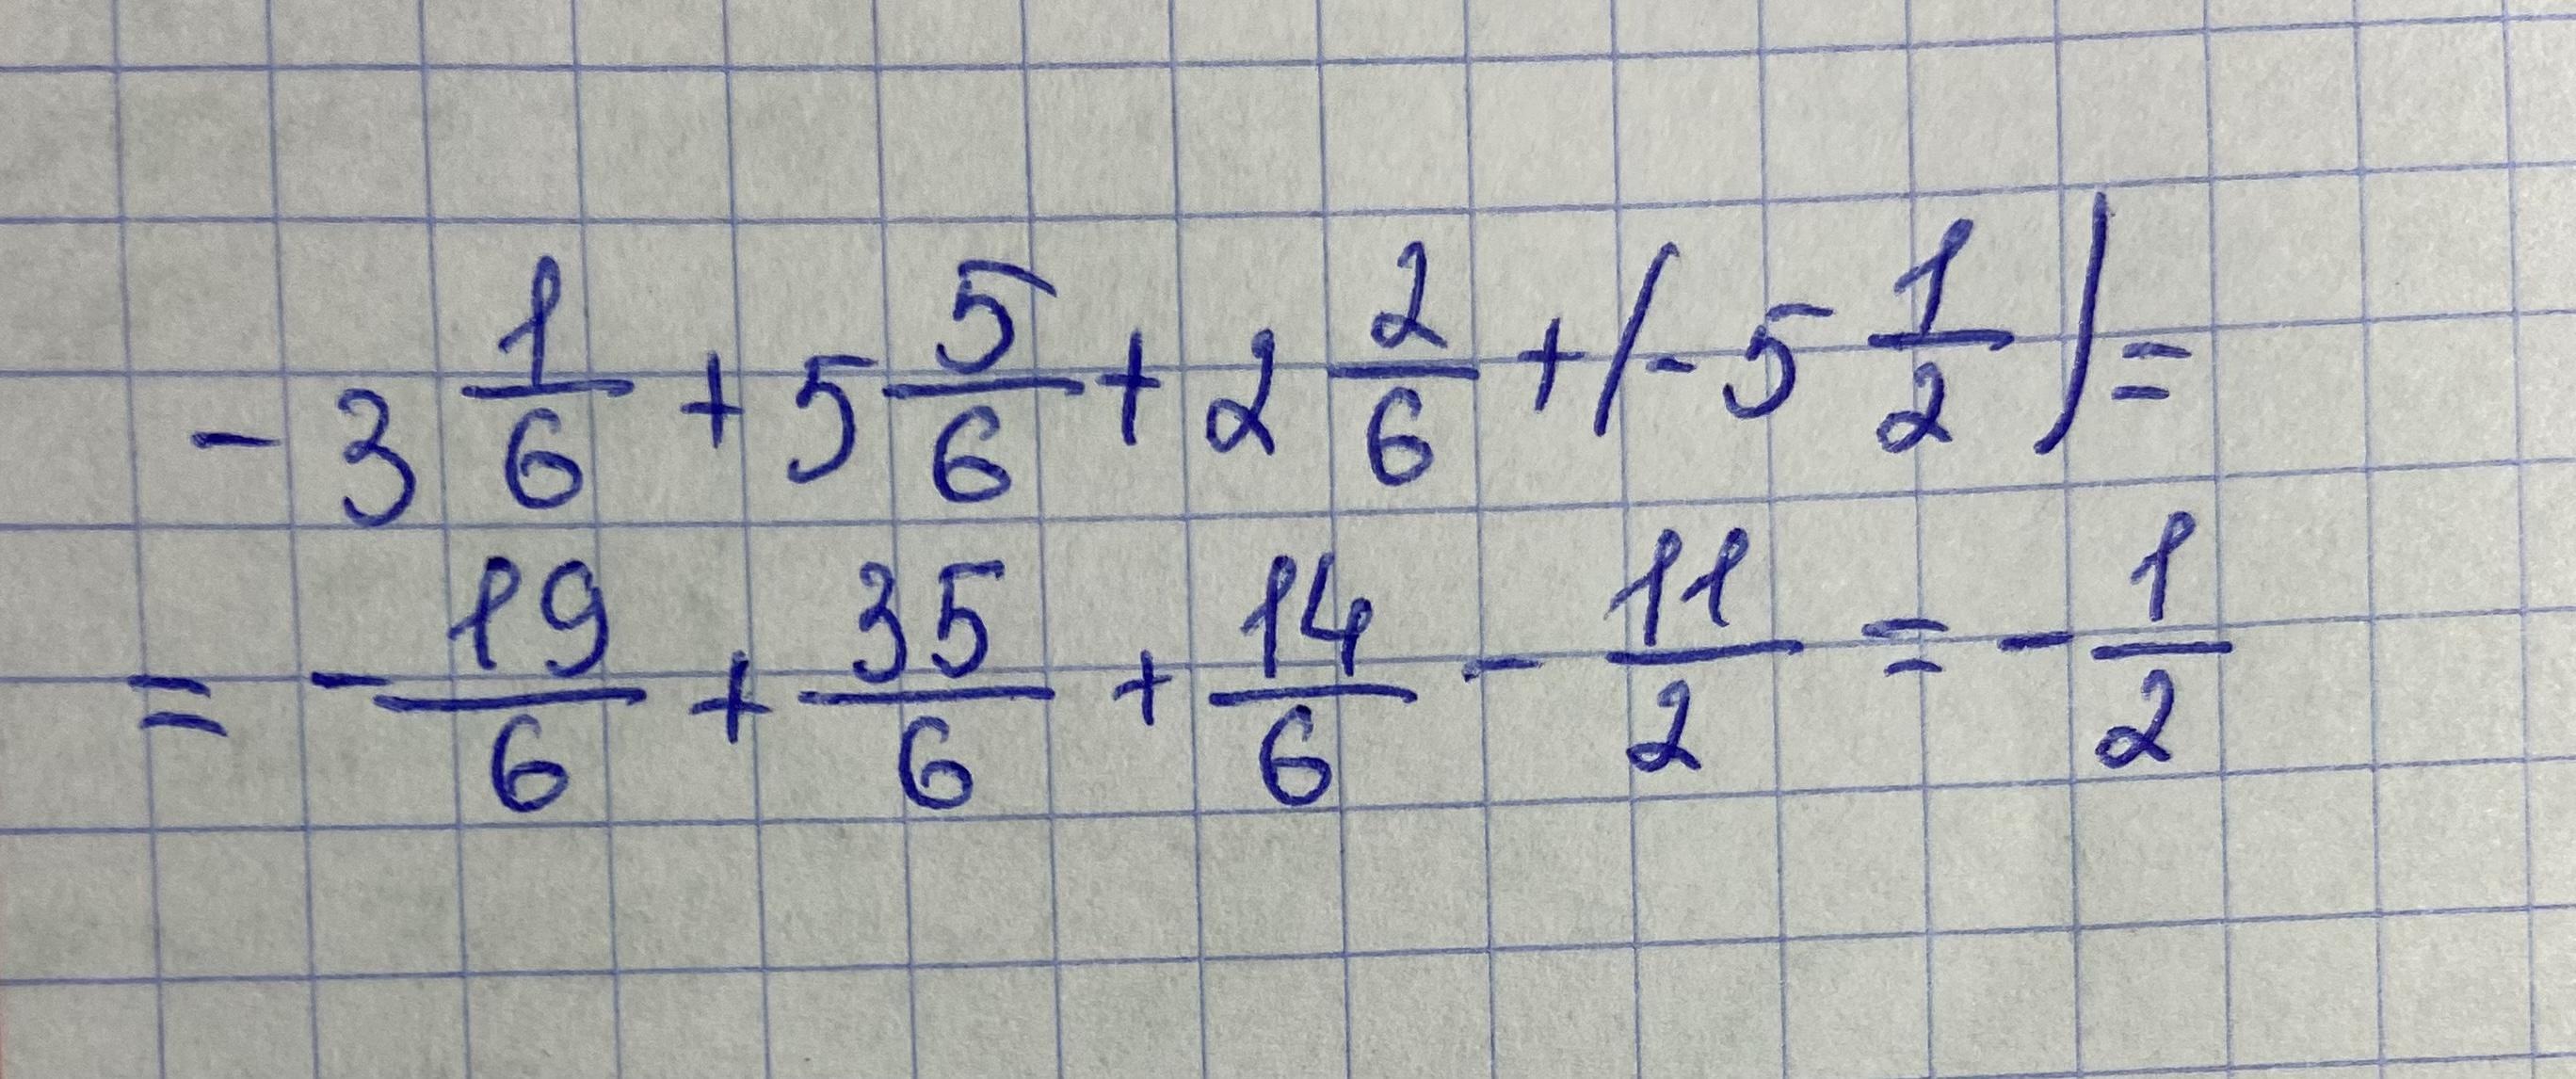 - 3 1/6 + 5 5/6 + 2 2/6 + (- 5 1/2) =
= - 19/6 + 35/6 + 14/6 - 11/2 = - 1/2